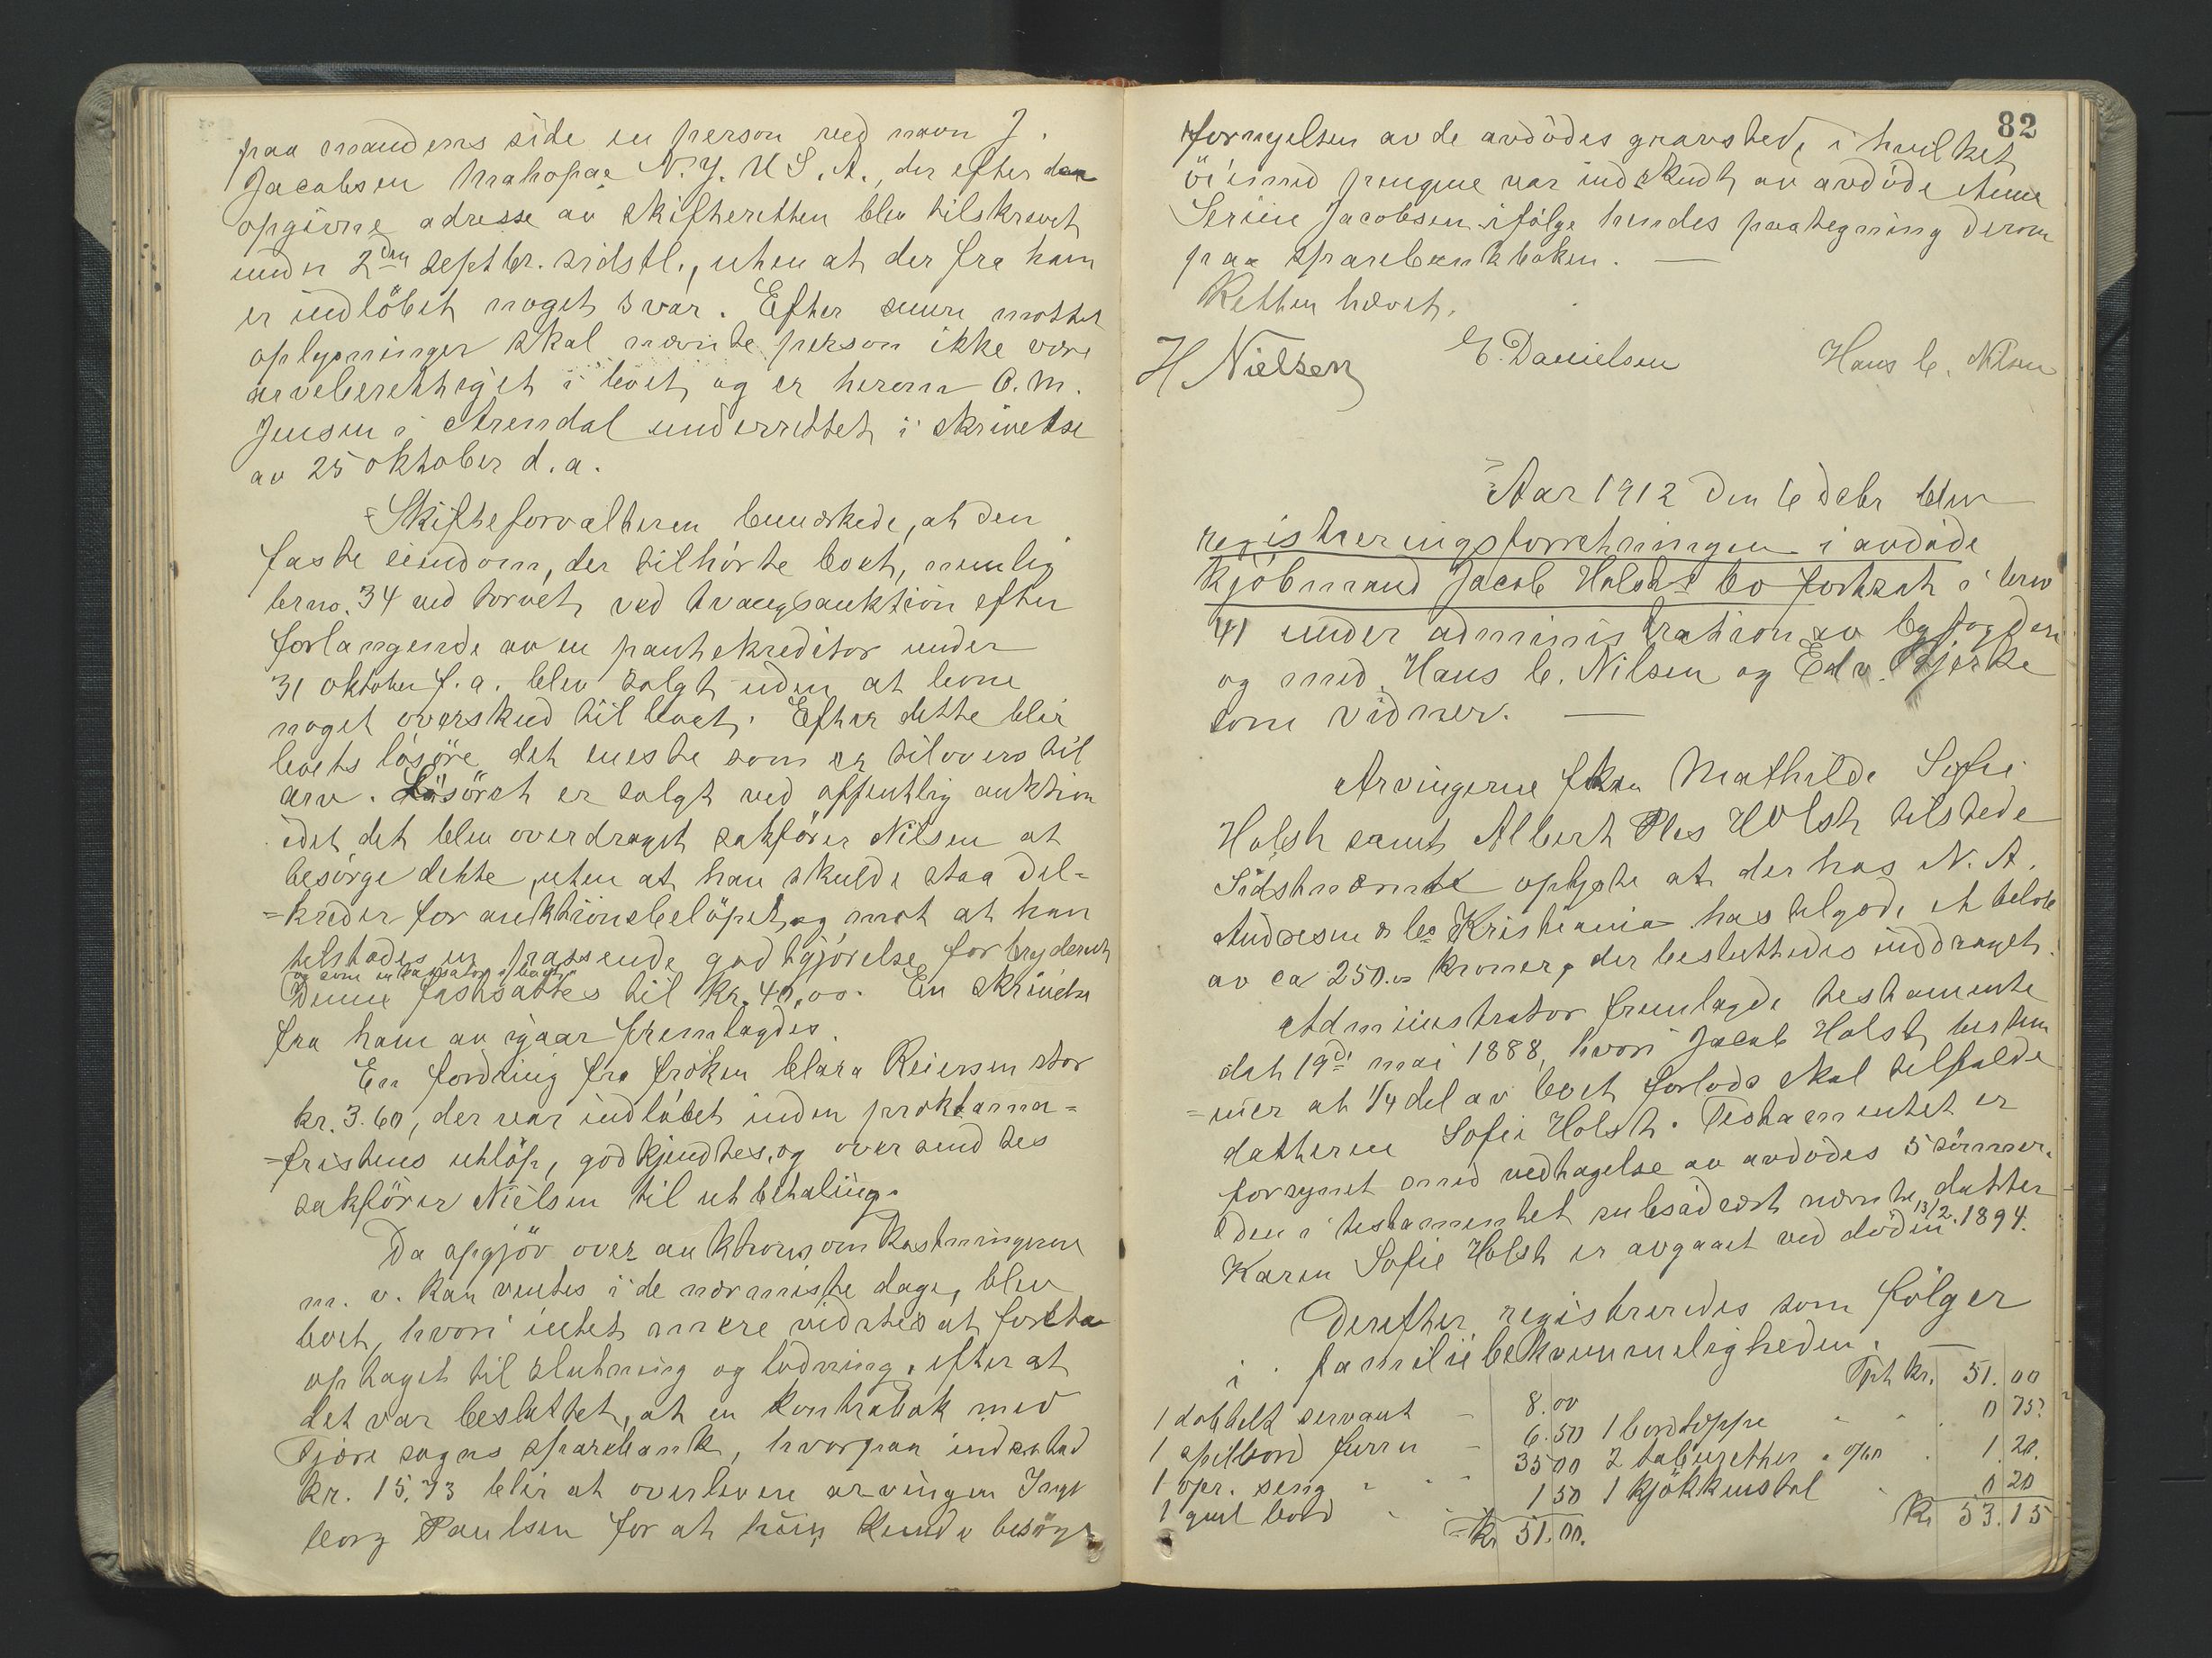 paa mandens side en person ved navn J.
Jacobsen Mahopac N.Y. U.S.A., der efter den
opgivne adresse av skifteretten blev tilskrevet
under 2den septbr. sidstl., uten at der fra ham
er indlöbet noget svar. Efter senere mottat
oplysninger skal nævnte person ikke være
arveberettiget i boet, og er herom O. M.
Jensen i Arendal underrettet i skrivelse
av 25 oktober d. a.
Skifteforvalteren bemerkede, at den
faste eiendom, der tilhörte boet, nemlig
brno. 34 ved torvet, ved tvangsauktion efter
forlangende av en pantekreditor under
31 oktober f. a. blev solgt uden at levne
noget overskud til boet. Efter dette blir
boets lösöre det eneste som er tilovers til
arv. Lösöret er solgt ved offentlig auktion
idet det blev overdraget sakförer Nilsen at
besörge dette, uten at han skulde staa del-
=kreder for auktionsbelöpet, og mot at han
tilstodes en passende godtgjörelse for bryderiet
og som inkassator i boet
Denne fastsattes til kr. 40,00. En skrivelse
fra ham av igaar fremlagdes.
En fordring fra fröken Clara Reiersen stor
kr. 3.60, der var indlöbet inden proklama-
=fristens utlöp, godkjendtes, og oversendtes
sakförer Nielsen til utbetaling.
Da opgjör over auktionsomkostningerne
m. v. kan ventes i de nærmeste dage, blev
boet, hvori intet mere vidstes at foreta
optaget til slutning og lodning, efter at
det var besluttet, at en kontrabok med
Tjöre sogns sparebank, hvorpaa indestod
kr. 15,73 blir at overlevere arvingen Inge
borg Paulsen for at hun kunde besörge
82
fornyelsen av de avdödes gravsted, i hvilket
öiemed pengene var indskudt av avdöde Anne
Serine Jacobsen ifölge hendes paategning derom
paa sparebankboken.
Retten hævet.
H Nielsen E. Danielsen Hans C. Nilsen
Aar 1912 den 6 debr blev
registreringsforretningen i avdöde
kjöbmand Jacob Holsts bo fortsat i brno
41 under administration av byfogden
og med Hans C. Nilsen og Edv. Bjerke
som vidner.
Arvingerne frkn Mathilde Sofie
Holst samt Albert Ples Holst tilstede
Sidstnævnte oplyste at der hos N. A.
Andresen & Co Kristiania has tilgode et belöb
av ca 250.00 kroner, der besluttedes inddraget.
Administrator fremlagde testamente
dat 19de mai 1888, hvori Jacob Holst bestem
=mer at 1/4 del av boet forlods skal tilfalde
datteren Sofie Holst. Testamentet er
forsynet med vedtagelse av avdödes 5 sönner.
Den i testamentet subsidært nævnte datter
Karen Sofie Holst er avgaaet ved döden 13/2.1894.
Derefter registreredes som fölger
i familiebekvemmeligheden.
1 dobbelt servant 8.00
1 spilbord furru 6.50
1 opr. seng 35 00
1 gml bord 1 50
Kr 51.00.
Tpt kr. 51.00
1 bordteppe 0 75
2 taburetter a 0/60 1.20.
1 kjökkenstol 0 20
Kr 53.15